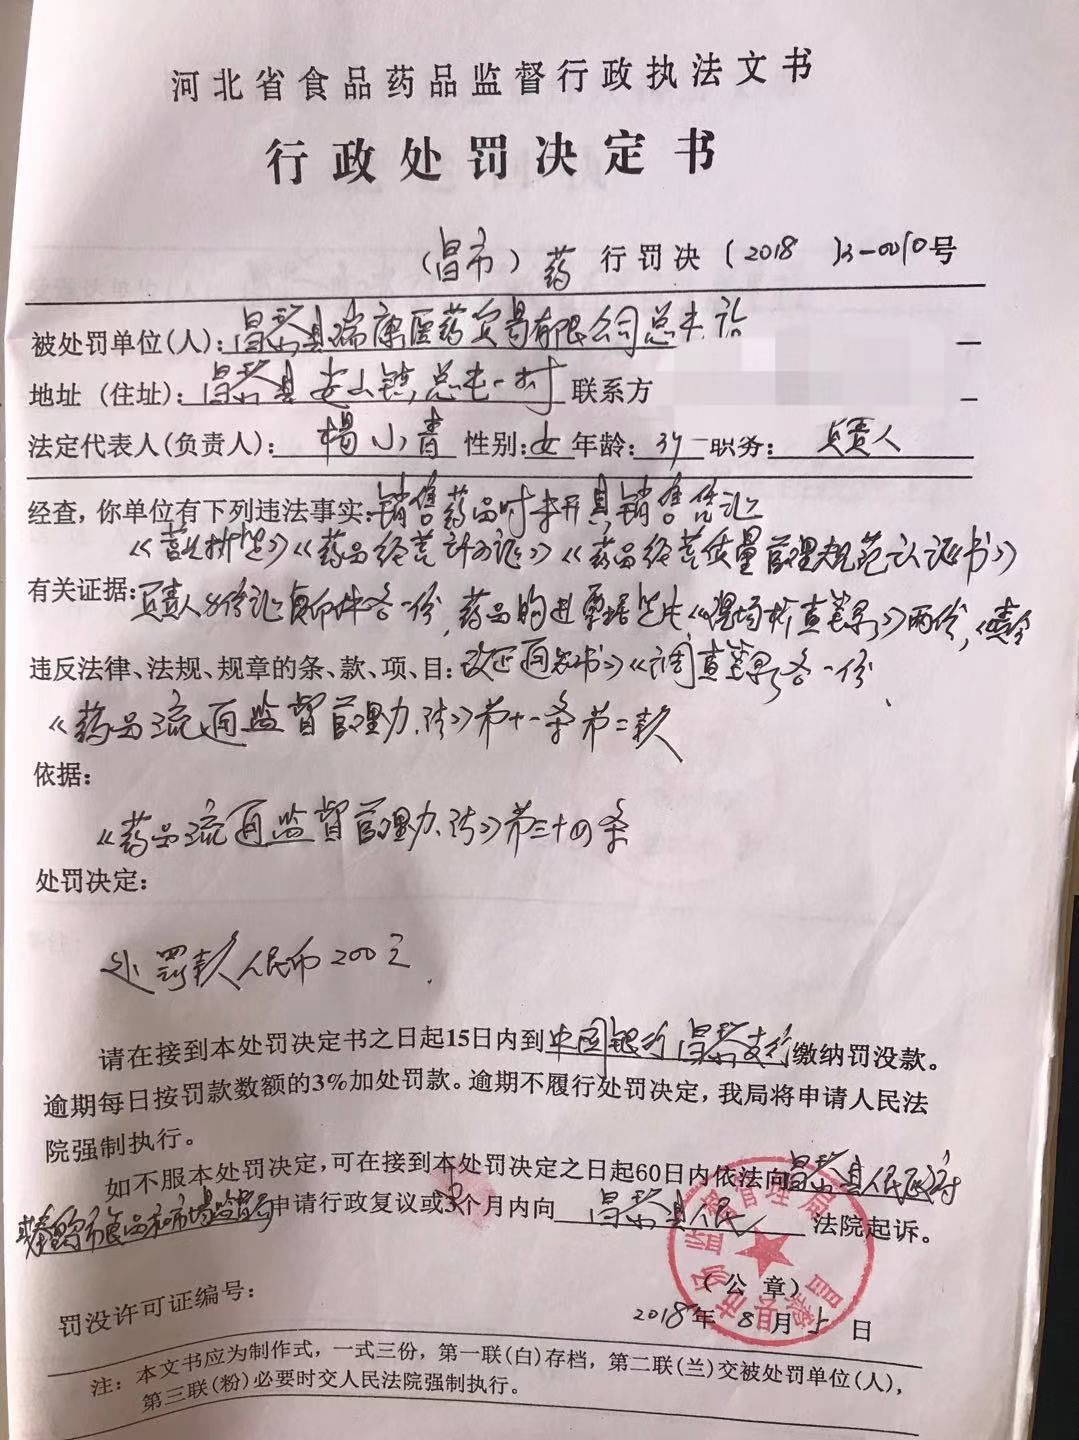 河北省食品药品监督行政执法文书
行政处罚决定书
（昌市）药 行罚决〔2018〕3-0010号
被处罚单位(人)：昌黎县瑞康医药贸易有限公司总屯店
地址（住址）：昌黎县安山镇总屯一村 联系方
法定代表人(负责人)：杨小青 性别：女 年龄：39 职务：负责人
经查，你单位有下列违法事实：销售药品时未开具销售凭证
《营业执照》《药品经营许可证》《药品经营质量管理规范认证证书》
有关证据：负责人身份证复印件各一份，药品购进票据照片《现场检查笔录》两份，《责令
违反法律、法规、规章的条、款、项、目：改正通知书》《调查笔录》各一份
《药品流通监督管理办法》第十一条第二款
依据：
《药品流通监督管理办法》第三十四条
处罚决定：
处罚款人民币200元.
请在接到本处罚决定书之日起15日内到中国银行昌黎支行缴纳罚没款。
逾期每日按罚款数额的3%加处罚款。逾期不履行处罚决定，我局将申请人民法
院强制执行。
如不服本处罚决定，可在接到本处罚决定之日起60日内依法向昌黎县人民政府
或秦皇岛市食品和市场监管局申请行政复议或 个月内向 昌黎县人民 法院起诉。
（公章）
罚没许可证编号：
2018年8月5日
注：本文书应为制作式，一式三份，第一联(白)存档，第二联(兰)交被处罚单位(人)，
第三联(粉)必要时交人民法院强制执行。
昌黎县市场监督管理局